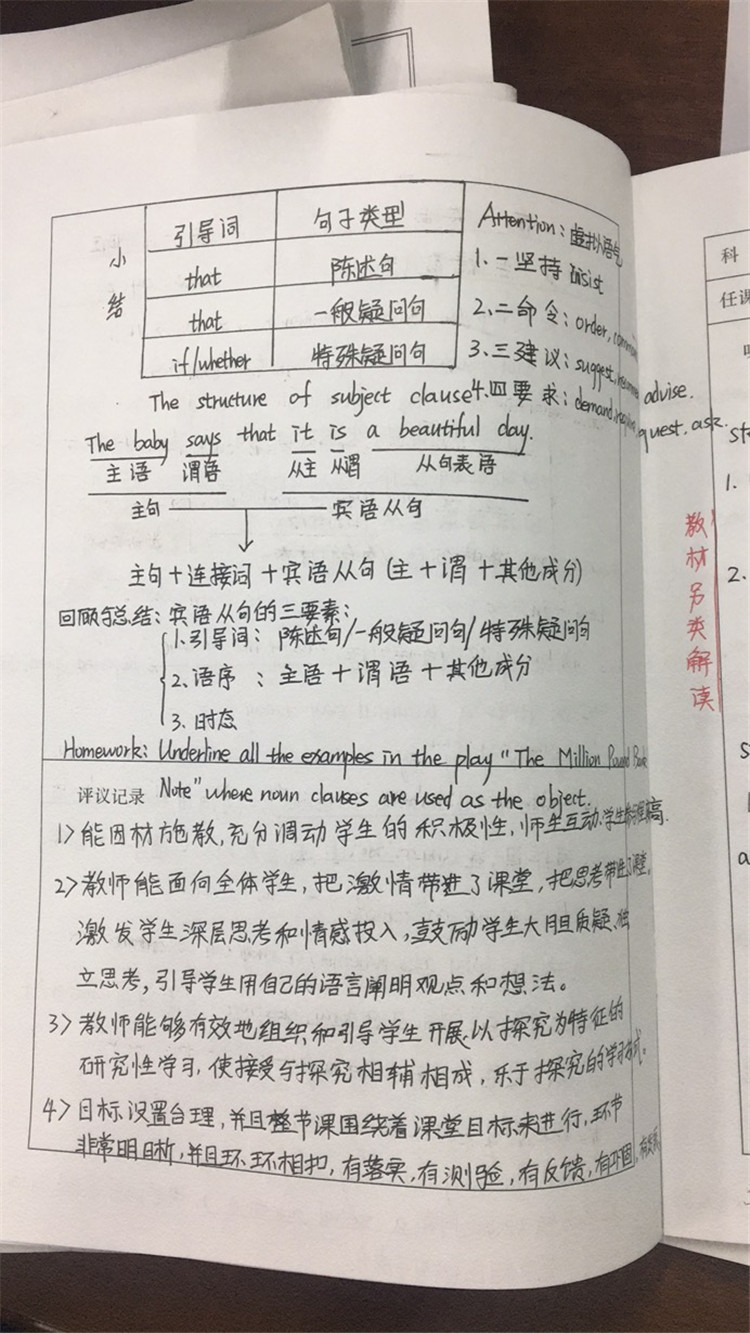 小结
引导词 句子类型
that 陈述句
that 一般疑问句
if/whether 特殊疑问句
Attention: 虚拟语气
1.一坚持 insist
2.二命令: order,
3.三建议: suggest, advise.
4.四要求: demand, ask.
The structure of subject clause
The baby says that it is a beautiful day.
主语 谓语 从主 从谓 从句表语
主句 宾语从句
主句+连接词+宾语从句(主+谓+其他成分)
回顾与总结: 宾语从句的三要素:
1.引导词: 陈述句/一般疑问句/特殊疑问句
2.语序: 主语+谓语+其他成分
3.时态
Homework: Underline all the examples in the play "The Million Pound Bank
评议记录 Note" where noun clauses are used as the object.
1>能因材施教,充分调动学生的积极性,师生互动,学生
2>教师能面向全体学生,把激情带进了课堂,把思考带进了课堂,
激发学生深层思考和情感投入,鼓励学生大胆质疑、独
立思考,引导学生用自己的语言阐明观点和想法。
3>教师能够有效地组织和引导学生开展以探究为特征的
研究性学习,使接受与探究相辅相成,乐于探究的学习方式。
4>目标设置合理,并且整节课围绕着课堂目标来进行,环节
非常明晰,并且环环相扣,有落实,有测验,有反馈,有巩固,
教材另类解读
科
任课
1.
2.